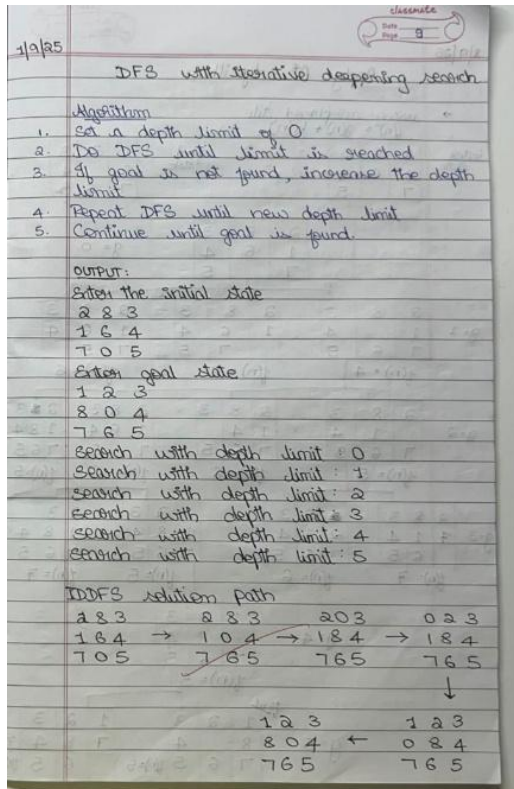 classmate
Date
Page 9
1/9/25
DFS with iterative deepening search
Algorithm
1. Set a depth limit of 0
2. Do DFS until limit is reached
3. If goal is not found, increase the depth
limit
4. Repeat DFS until new depth limit
5. Continue until goal is found.
OUTPUT:
Enter the initial state
2 8 3
1 6 4
7 0 5
Enter goal state
1 2 3
8 0 4
7 6 5
search with depth limit : 0
search with depth limit : 1
search with depth limit : 2
search with depth limit : 3
search with depth limit : 4
search with depth limit : 5
IDDFS solution path
2 8 3 2 8 3 2 0 3 0 2 3
1 6 4 → 1 0 4 → 1 8 4 → 1 8 4
7 0 5 7 6 5 7 6 5 7 6 5
↓
1 2 3 1 2 3
8 0 4 ← 0 8 4
7 6 5 7 6 5